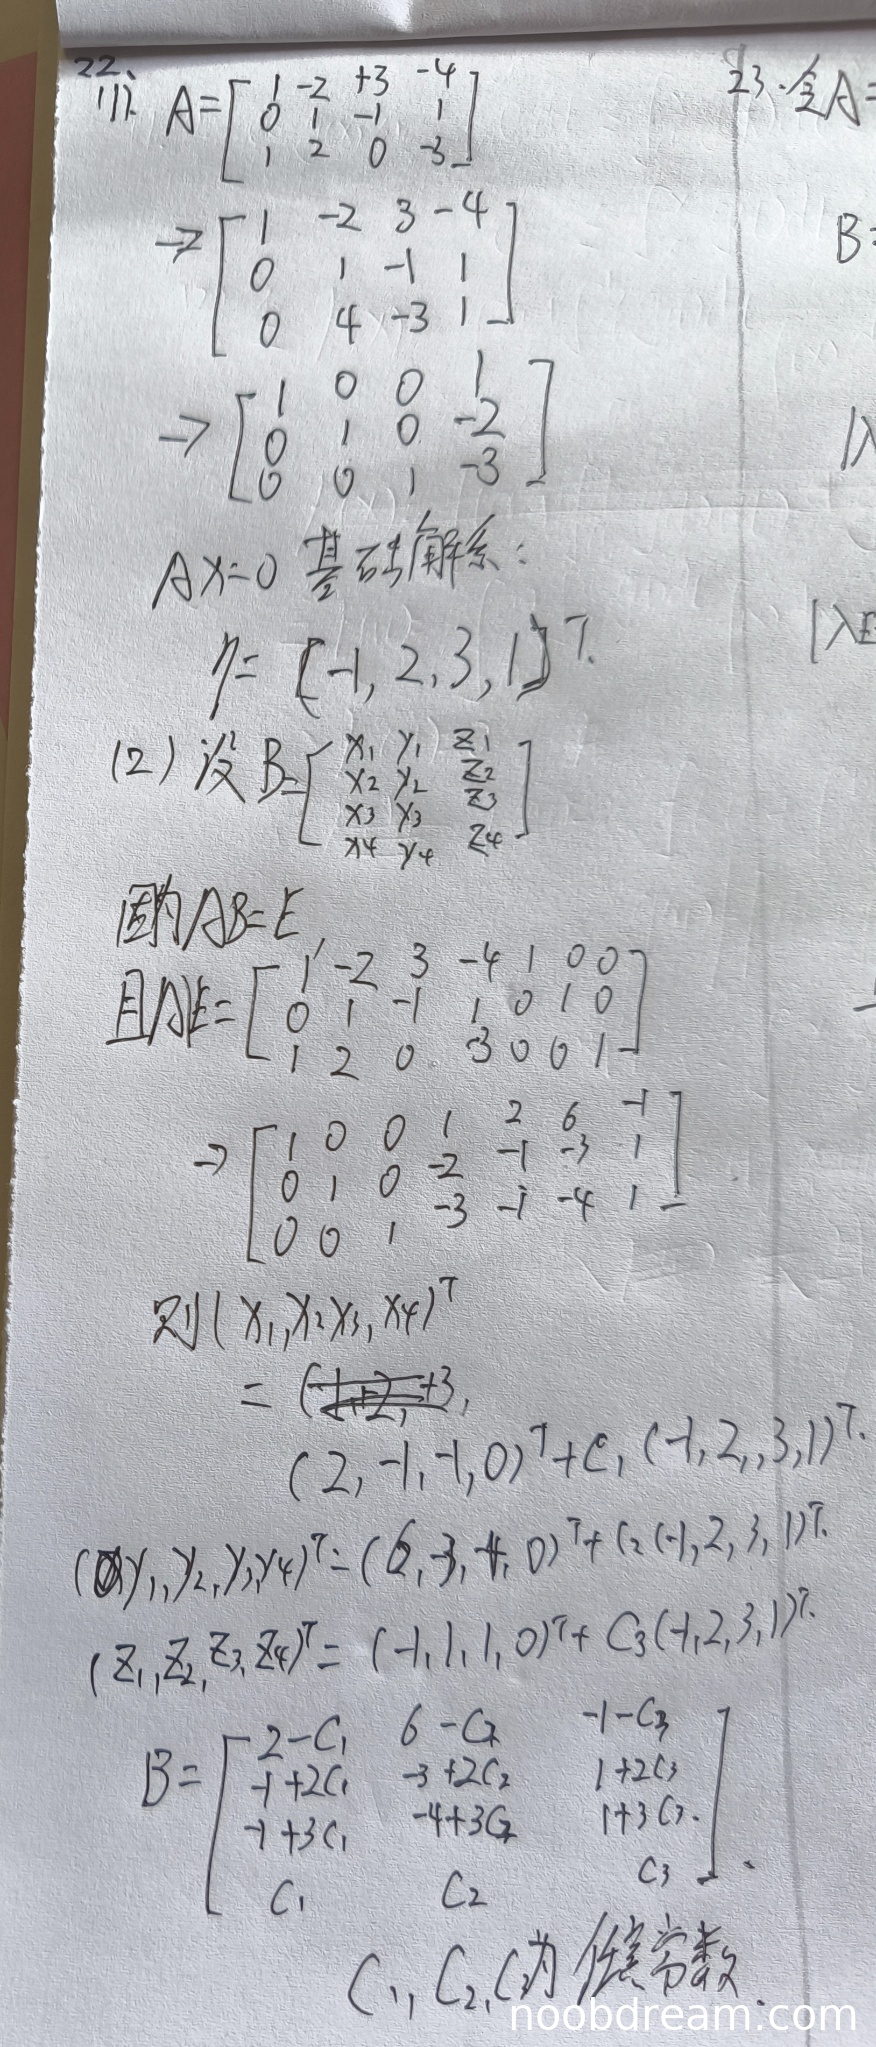 22.
(1). A=[1 -2 +3 -4
0 1 -1 1
1 2 0 -3]
→[1 -2 3 -4
0 1 -1 1
0 4 -3 1]
→[1 0 0 1
0 1 0 -2
0 0 1 -3]
AX=0 基础解系:
η=[-1,2,3,1]T.
(2) 设B=[x1 y1 z1
x2 y2 z2
x3 y3 z3
x4 y4 z4]
因为AB=E,
且A|E=[1 -2 3 -4 1 0 0
0 1 -1 1 0 1 0
1 2 0 -3 0 0 1]
→[1 0 0 1 2 6 -1
0 1 0 -2 -1 -3 1
0 0 1 -3 -1 -4 1]
则(x1,x2x3,x4)T
= ( +3,
(2,-1,-1,0)T+C1(-1,2,,3,1)T.
(y1,y2,y3,y4)T=(6,-3,-4,0)T+C2(-1,2,3,1)T.
(z1,z2,z3,z4)T=(-1,1,1,0)T+C3(-1,2,3,1)T.
B=[2-C1 6-C2 -1-C3
-1+2C1 -3+2C2 1+2C3
-1+3C1 -4+3C2 1+3C3.
C1 C2 C3].
C1,C2,C3为任意常数.
23.令A=
B=
|λ
|λE
noobdream.com